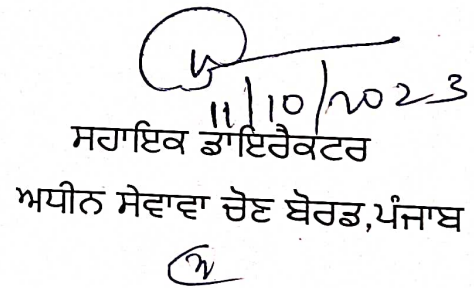 11/10/2023
ਸਹਾਇਕ ਡਾਇਰੈਕਟਰ
ਅਧੀਨ ਸੇਵਾਵਾ ਚੋਣ ਬੋਰਡ,ਪੰਜਾਬ